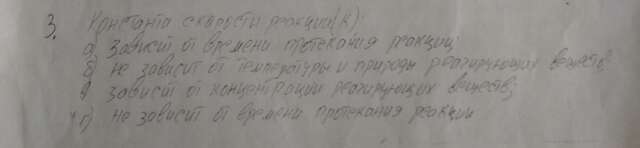 3. Константа скорости реакции(k):
а) зависит от времени протекания реакции;
б) не зависит от температуры и природы реагирующих веществ
в) зависит от концентрации реагирующих веществ;
г) не зависит от времени протекания реакции